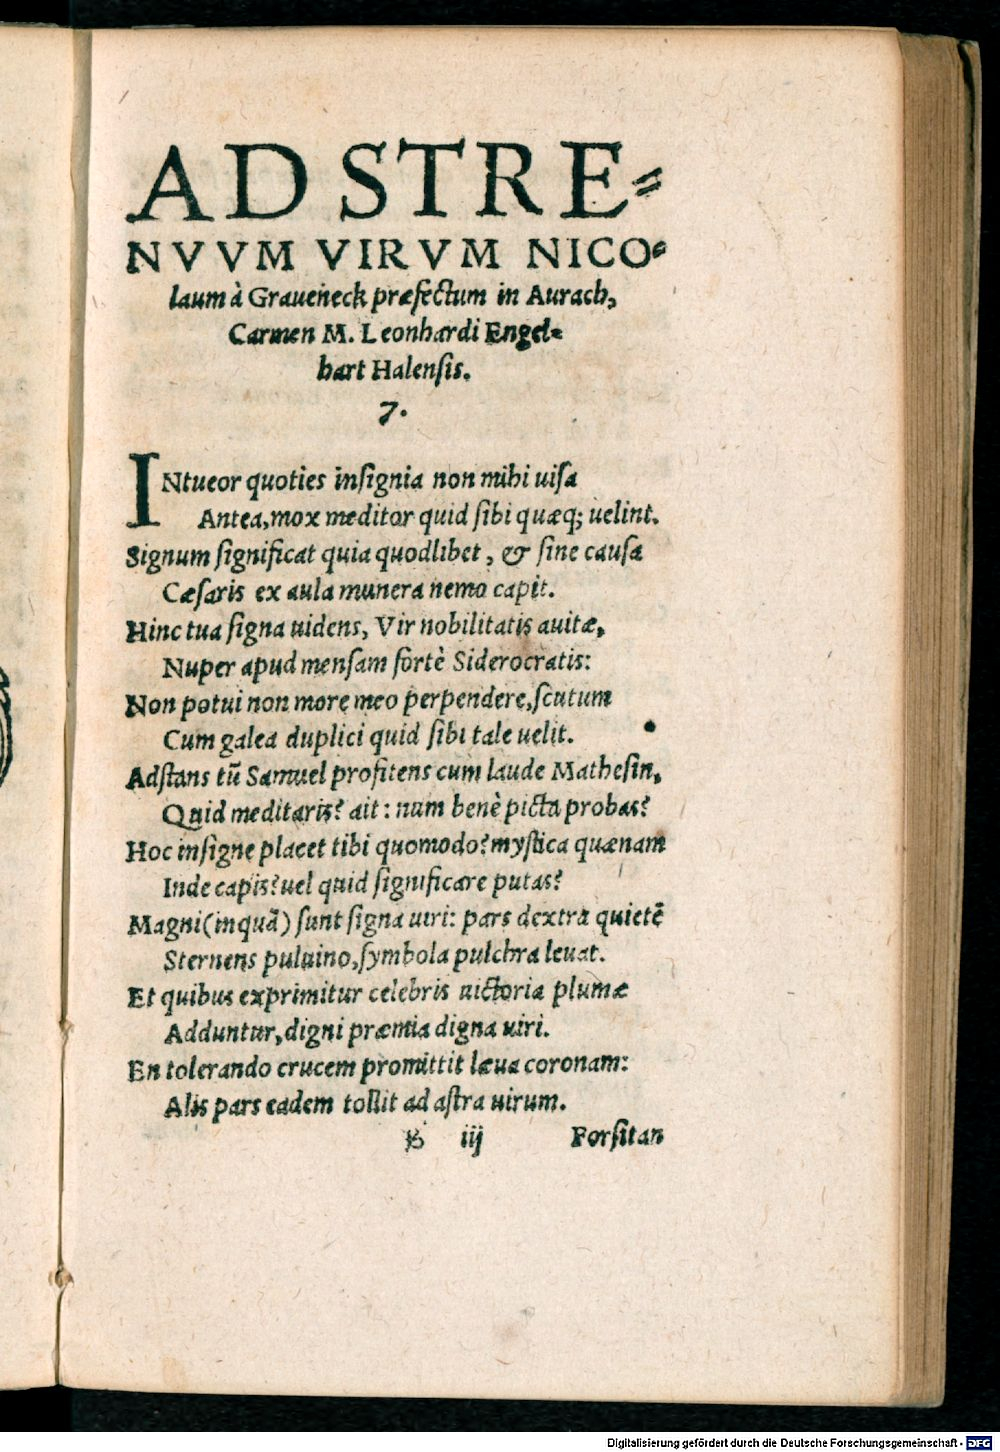 AD STRE⸗
NVVM VIRVM NICO⸗
laum à Graueneck præfectum in Aurach,
Carmen M. Leonhardi Engel⸗
hart Halensis.
7.
INtueor quoties insignia non mihi uisa
Antea, mox meditor quid sibi quæq; uelint.
Signum significat quia quodlibet, & sine causa
Cæsaris ex aula munera nemo capit.
Hinc tua signa uidens, Vir nobilitatis auitæ,
Nuper apud mensam fortè Siderocratis:
Non potui non more meo perpendere, scutum
Cum galea duplici quid sibi tale uelit.
Adstans tũ Samuel profitens cum laude Mathesin,
Quid meditaris? ait: num benè picta probas?
Hoc insigne placet tibi quomodo? mystica quænam
Inde capis? uel quid significare putas?
Magni (inquã) sunt signa uiri: pars dextra quietẽ
Sternens puluino, symbola pulchra leuat.
Et quibus exprimitur celebris uictoria plumæ
Adduntur, digni præmia digna uiri.
En tolerando crucem promittit læua coronam:
Alis pars eadem tollit ad astra uirum.
B iij Forsitan
Digitalisierung gefördert durch die Deutsche Forschungsgemeinschaft - DFG